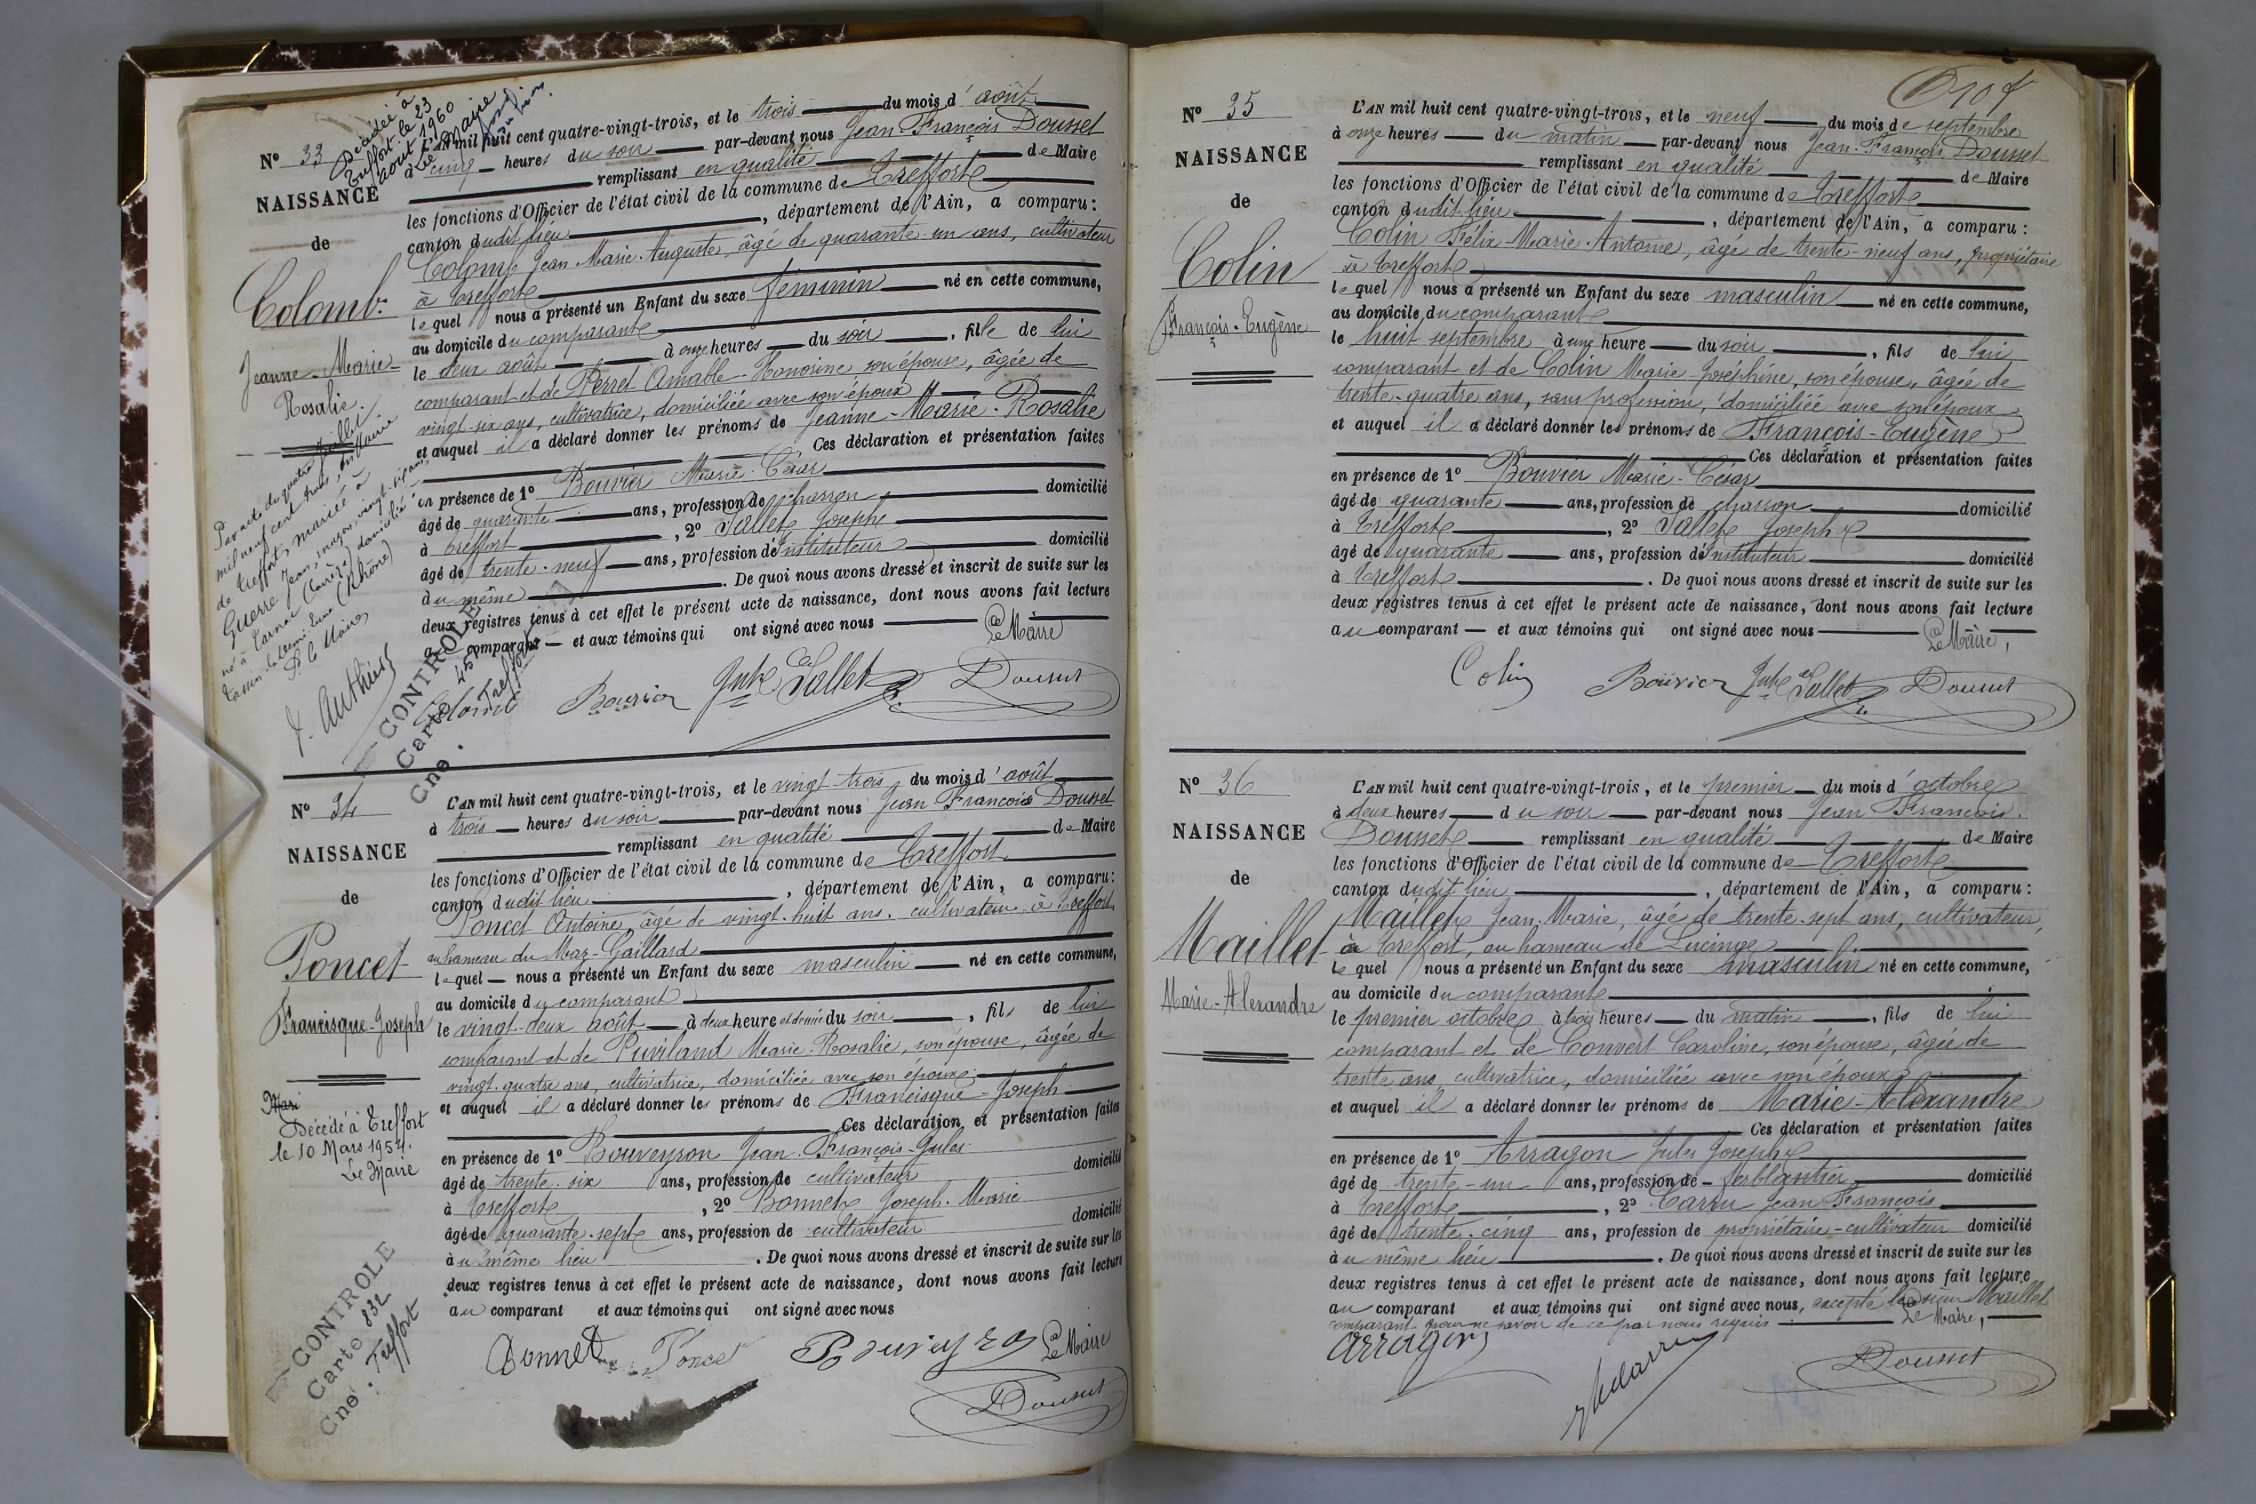 N° 33
NAISSANCE
de
Colomb
Jeanne-Marie-
Rosalie.
Décédée à
Treffort le 23
août 1960
Le Maire
L'AN mil huit cent quatre-vingt-trois, et le trois du mois d'août
à cinq heures du soir par-devant nous Jean François Dousset
remplissant en qualité de Maire
les fonctions d'Officier de l'état civil de la commune de Treffort
canton dudit lieu, département de l'Ain, a comparu:
Colomb Jean Marie Auguste, âgé de quarante-un ans, cultivateur
à Treffort
lequel nous a présenté un Enfant du sexe féminin né en cette commune,
au domicile du comparant
le deux août à onze heures du soir, fille de lui
comparant et de Perret Amable-Honorine son épouse, âgée de
vingt-six ans, cultivatrice, domiciliée avec son époux
et auquel il a déclaré donner les prénoms de Jeanne-Marie-Rosalie
Ces déclaration et présentation faites
en présence de 1° Bouvier Marie-César
âgé de quarante ans, profession de charron domicilié
à Treffort, 2° Sallet Joseph
âgé de trente-neuf ans, profession d'Instituteur domicilié
du même. De quoi nous avons dressé et inscrit de suite sur les
deux registres tenus à cet effet le présent acte de naissance, dont nous avons fait lecture
au comparant et aux témoins qui ont signé avec nous Le Maire
Colomb Bouvier Jph Sallet Dousset
Par acte du quatre juillet
mil neuf cent trois,
de Treffort, mariée à
Guerre Jean, maçon, vingt-six ans,
né à Tarnac (Corrèze) domicilié à
Tassin-la-Demi-Lune (Rhône)
P. le Maire
CONTROLE
Carte 451
Cne. Treffort
N° 34
NAISSANCE
de
Poncet
Francisque-Joseph
L'AN mil huit cent quatre-vingt-trois, et le vingt-trois du mois d'août
à trois heures du soir par-devant nous Jean François Dousset
remplissant en qualité de Maire
les fonctions d'Officier de l'état civil de la commune de Treffort
canton dudit lieu, département de l'Ain, a comparu:
Poncet Antoine, âgé de vingt-huit ans, cultivateur à Treffort
au hameau du Maz-Gaillard
lequel nous a présenté un Enfant du sexe masculin né en cette commune,
au domicile du comparant
le vingt-deux août à deux heure et demie du soir, fils de lui
comparant et de Puvilland Marie Rosalie, son épouse, âgée de
vingt-quatre ans, cultivatrice, domiciliée avec son époux
et auquel il a déclaré donner les prénoms de Francisque-Joseph
Ces déclaration et présentation faites
en présence de 1° Bouveyron Jean-François-Jules
âgé de trente-six ans, profession de cultivateur domicilié
à Treffort, 2° Bonnet Joseph-Marie
âgé de quarante-sept ans, profession de cultivateur domicilié
au même lieu. De quoi nous avons dressé et inscrit de suite sur les
deux registres tenus à cet effet le présent acte de naissance, dont nous avons fait lecture
au comparant et aux témoins qui ont signé avec nous
Bonnet Poncet Bouveyron Le Maire
Dousset
Mari
Décédé à Treffort
le 10 Mars 1954.
Le Maire
CONTROLE
Carte 832
Cne. Treffort
N° 35
NAISSANCE
de
Colin
François-Eugène
L'AN mil huit cent quatre-vingt-trois, et le neuf du mois de septembre
à onze heures du matin par-devant nous Jean-François Dousset
remplissant en qualité de Maire
les fonctions d'Officier de l'état civil de la commune de Treffort
canton dudit lieu, département de l'Ain, a comparu:
Colin Félix Marie Antoine, âgé de trente-neuf ans, propriétaire
à Treffort
lequel nous a présenté un Enfant du sexe masculin né en cette commune,
au domicile du comparant
le huit septembre à une heure du soir, fils de lui
comparant et de Colin Marie-Joséphine, son épouse, âgée de
trente-quatre ans, sans profession, domiciliée avec son époux
et auquel il a déclaré donner les prénoms de François-Eugène
Ces déclaration et présentation faites
en présence de 1° Bouvier Marie-César
âgé de quarante ans, profession de charron domicilié
à Treffort, 2° Sallet Joseph
âgé de quarante ans, profession d'Instituteur domicilié
à Treffort. De quoi nous avons dressé et inscrit de suite sur les
deux registres tenus à cet effet le présent acte de naissance, dont nous avons fait lecture
au comparant et aux témoins qui ont signé avec nous Le Maire,
Colin Bouvier Jph Sallet Dousset
N° 36
NAISSANCE
de
Maillet
Marie-Alexandre
L'AN mil huit cent quatre-vingt-trois, et le premier du mois d'octobre
à deux heures du soir par-devant nous Jean François
Dousset remplissant en qualité de Maire
les fonctions d'Officier de l'état civil de la commune de Treffort
canton dudit lieu, département de l'Ain, a comparu:
Maillet Jean-Marie, âgé de trente-sept ans, cultivateur,
à Treffort, au hameau de Lucinge
le quel nous a présenté un Enfant du sexe masculin né en cette commune,
au domicile du comparant
le premier octobre à trois heures du matin, fils de lui
comparant et de Convert Caroline, son épouse, âgée de
trente ans, cultivatrice, domiciliée avec son époux
et auquel il a déclaré donner les prénoms de Marie-Alexandre
Ces déclaration et présentation faites
en présence de 1° Arragon Jules Joseph
âgé de trente-un ans, profession de ferblantier domicilié
à Treffort, 2° Carru Jean François
âgé de trente-cinq ans, profession de propriétaire-cultivateur domicilié
au même lieu. De quoi nous avons dressé et inscrit de suite sur les
deux registres tenus à cet effet le présent acte de naissance, dont nous avons fait lecture
au comparant et aux témoins qui ont signé avec nous, excepté le sieur Maillet
comparant pour ne savoir de ce par nous requis Le Maire,
Arragon
Dousset